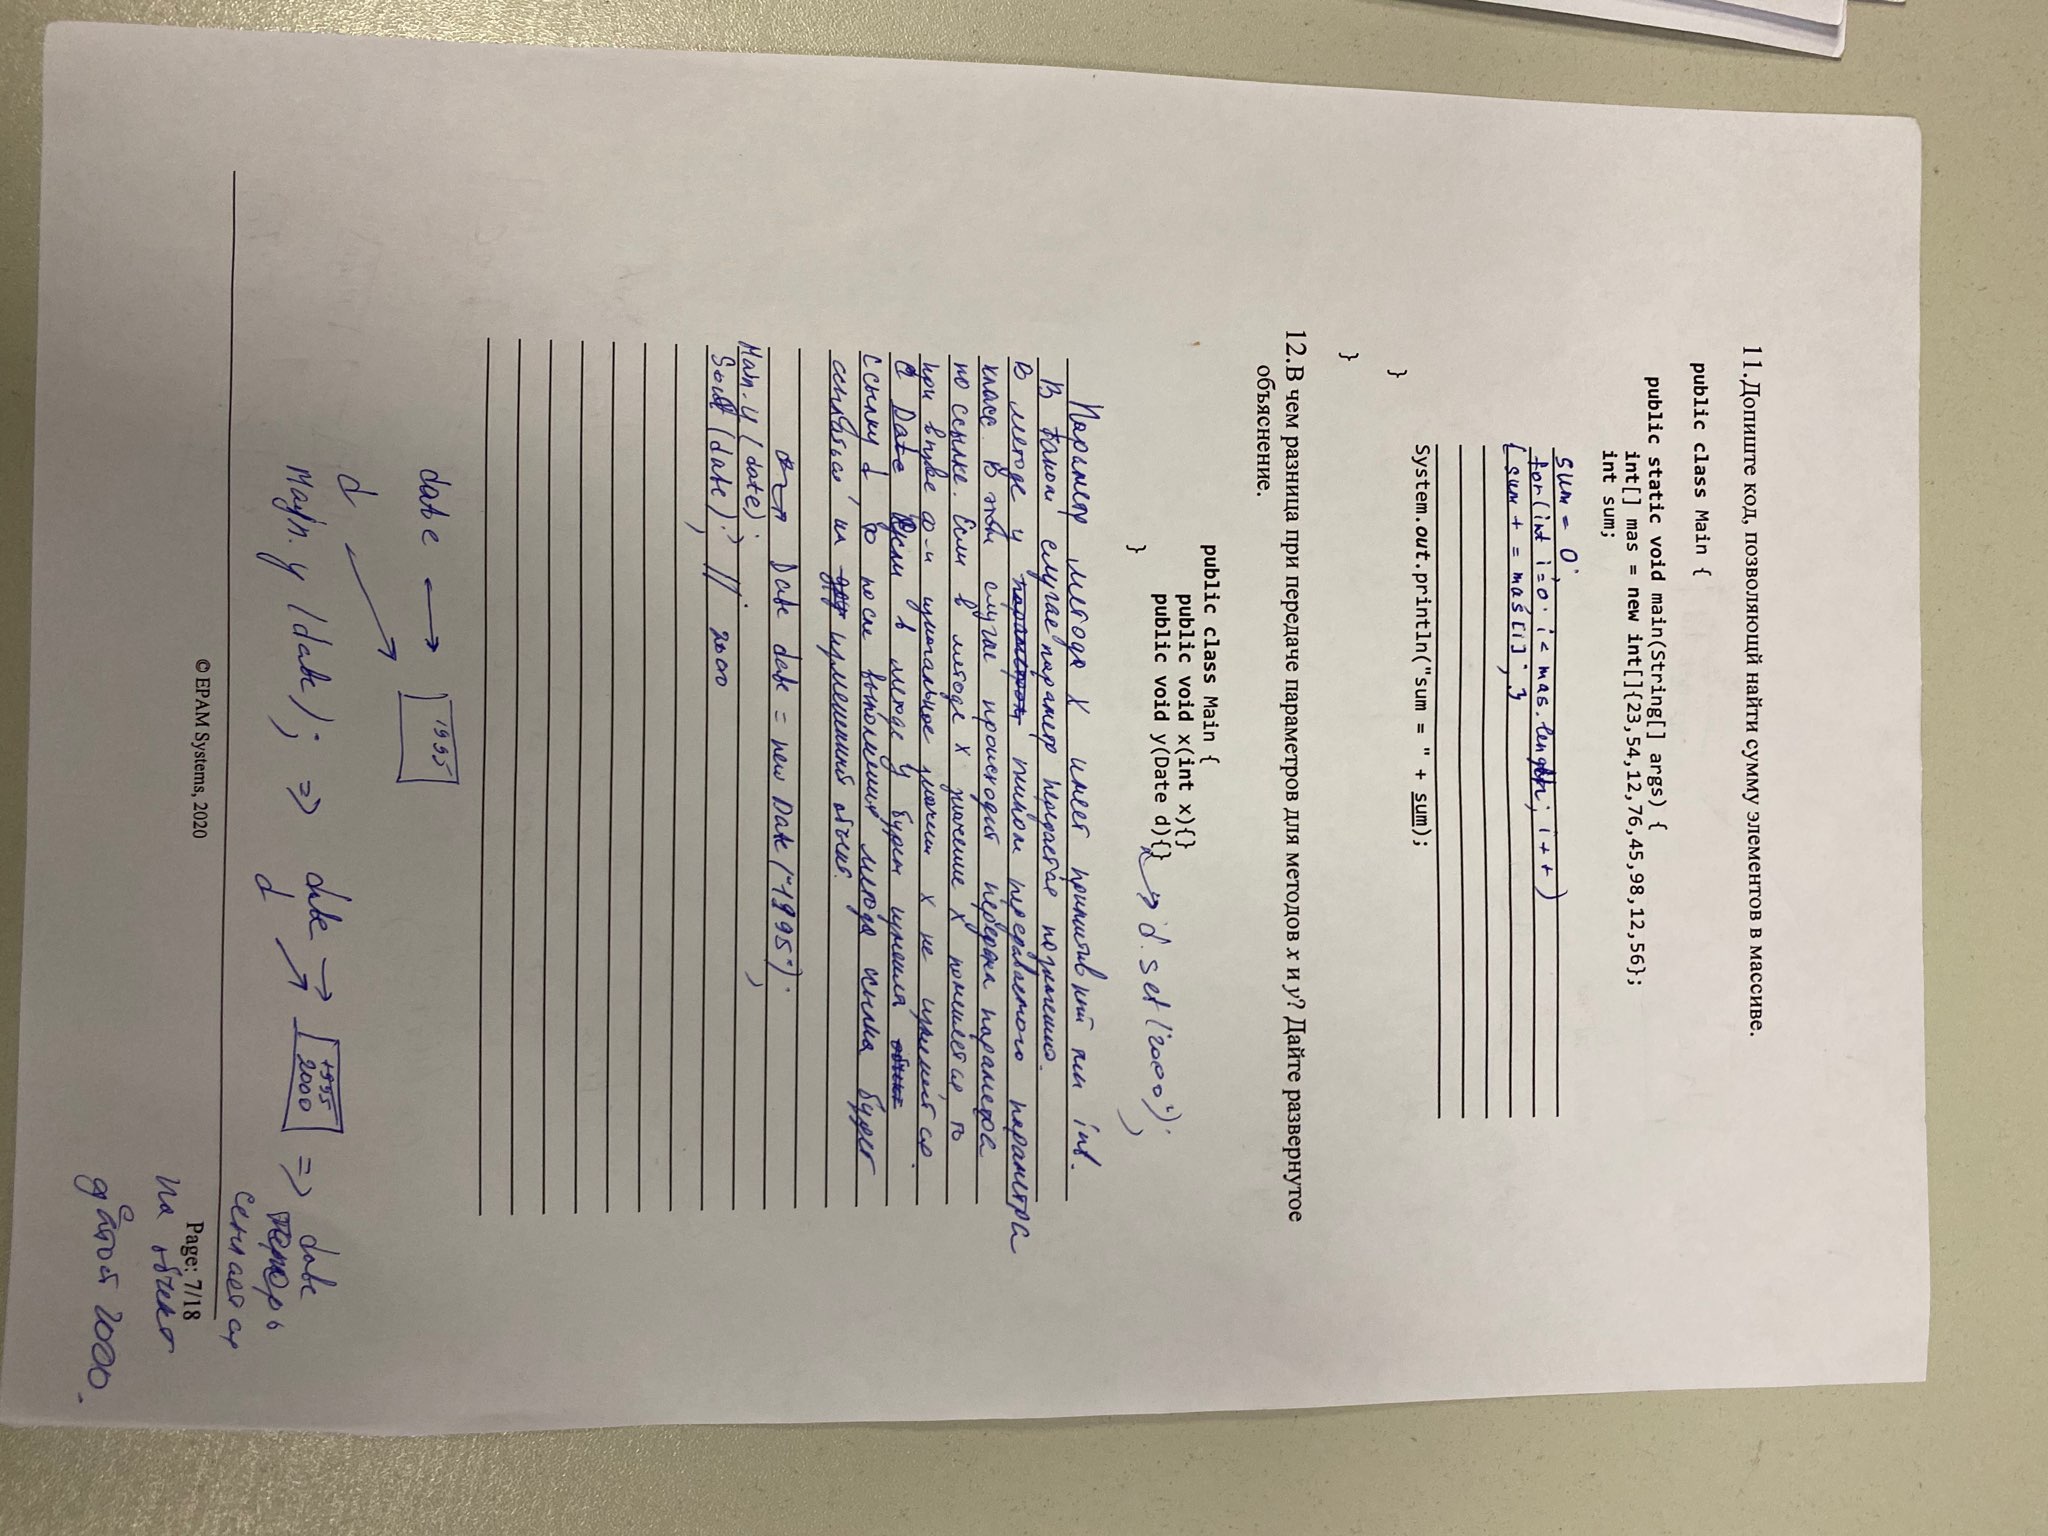 11.Допишите код, позволяющй найти сумму элементов в массиве.
public class Main {
public static void main(String[] args) {
int[] mas = new int[]{23,54,12,76,45,98,12,56};
int sum;
sum = 0;
for(int i=0; i < mas.length; i++)
{ sum + = mas[i]; }
System.out.println("sum = " + sum);
}
}
12.В чем разница при передаче параметров для методов x и y? Дайте развернутое
объяснение.
public class Main {
public void x(int x){}
public void y(Date d){} d.set("2000");
}
Параметр метода X имеет примитивный тип int.
В таком случае параметр передается
В методе y типом передаваемого параметра
класс. В этом случае происходит передача параметров
по ссылке. Если в методе x значение x поменяется, то
при вызове ф-и изначальное значение x не изменится.
Date Если в методе y будем
ссылку d, то после выполнения метода ссылка будет
ссылаться на измененный объект.
Date date = new Date("1995");
Main.y(date);
Sout(date); // 2000
date → 1995
d
Main.y(date); ⇒ date → 1995 2000 ⇒ date
d
теперь
ссылается
на объект
с датой 2000.
© EPAM Systems, 2020
Page: 7/18